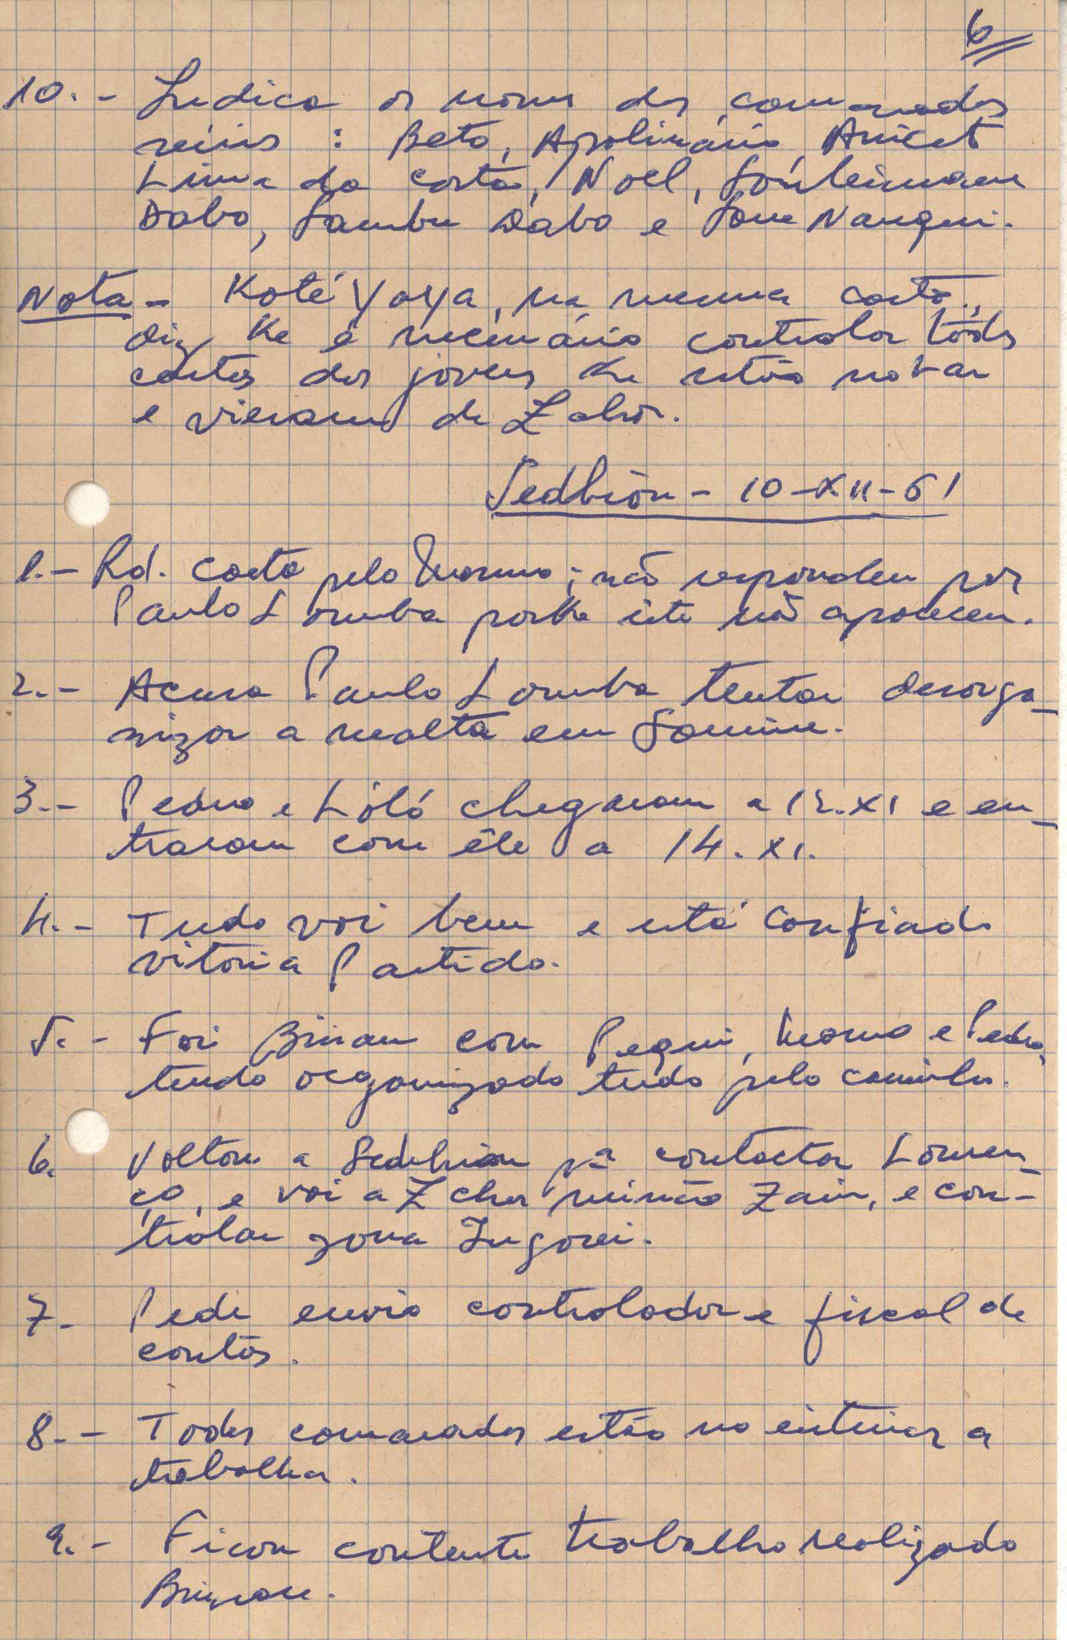 6
10.- Indica os nomes dos camaradas
reúnis : Beto, Apolinário, Anicet
Lima da Costa, Noel, Souleimane
Dabo, Sambu Dabo e Sou Nanqui.
Nota - Koté Yaya, na mesma carta,
diz ke é necessário controlar todas
contas dos jovens ke estão no bar
e vieram de Zaho.
Sedhiou - 10-XII-61
1.- Rd. carta pelo Momo; não respondeu por
Paulo Lomba porke êste não apareceu.
2.- Acusa Paulo Lomba tentar desorga-
nizar a malta em Samine.
3.- Pedro e Lóló chegaram a 12.XI e en-
traram com êle a 14.XI.
4.- Tudo voi bem e está confiado
vitoria Partido.
5.- Foi Binam com Pequi, Momo e Pedro,
tendo organizado tudo pelo caminho.
6. Voltou a Sedhiou pª contactar Louren-
ço, e voi a Zchor reunião Zain, e con-
trolar zona Ingorei.
7. Pede envio controlador e fiscal de
contas.
8.- Todos camaradas estão no interior a
trabalhar.
9.- Ficou contente trabalho realizado